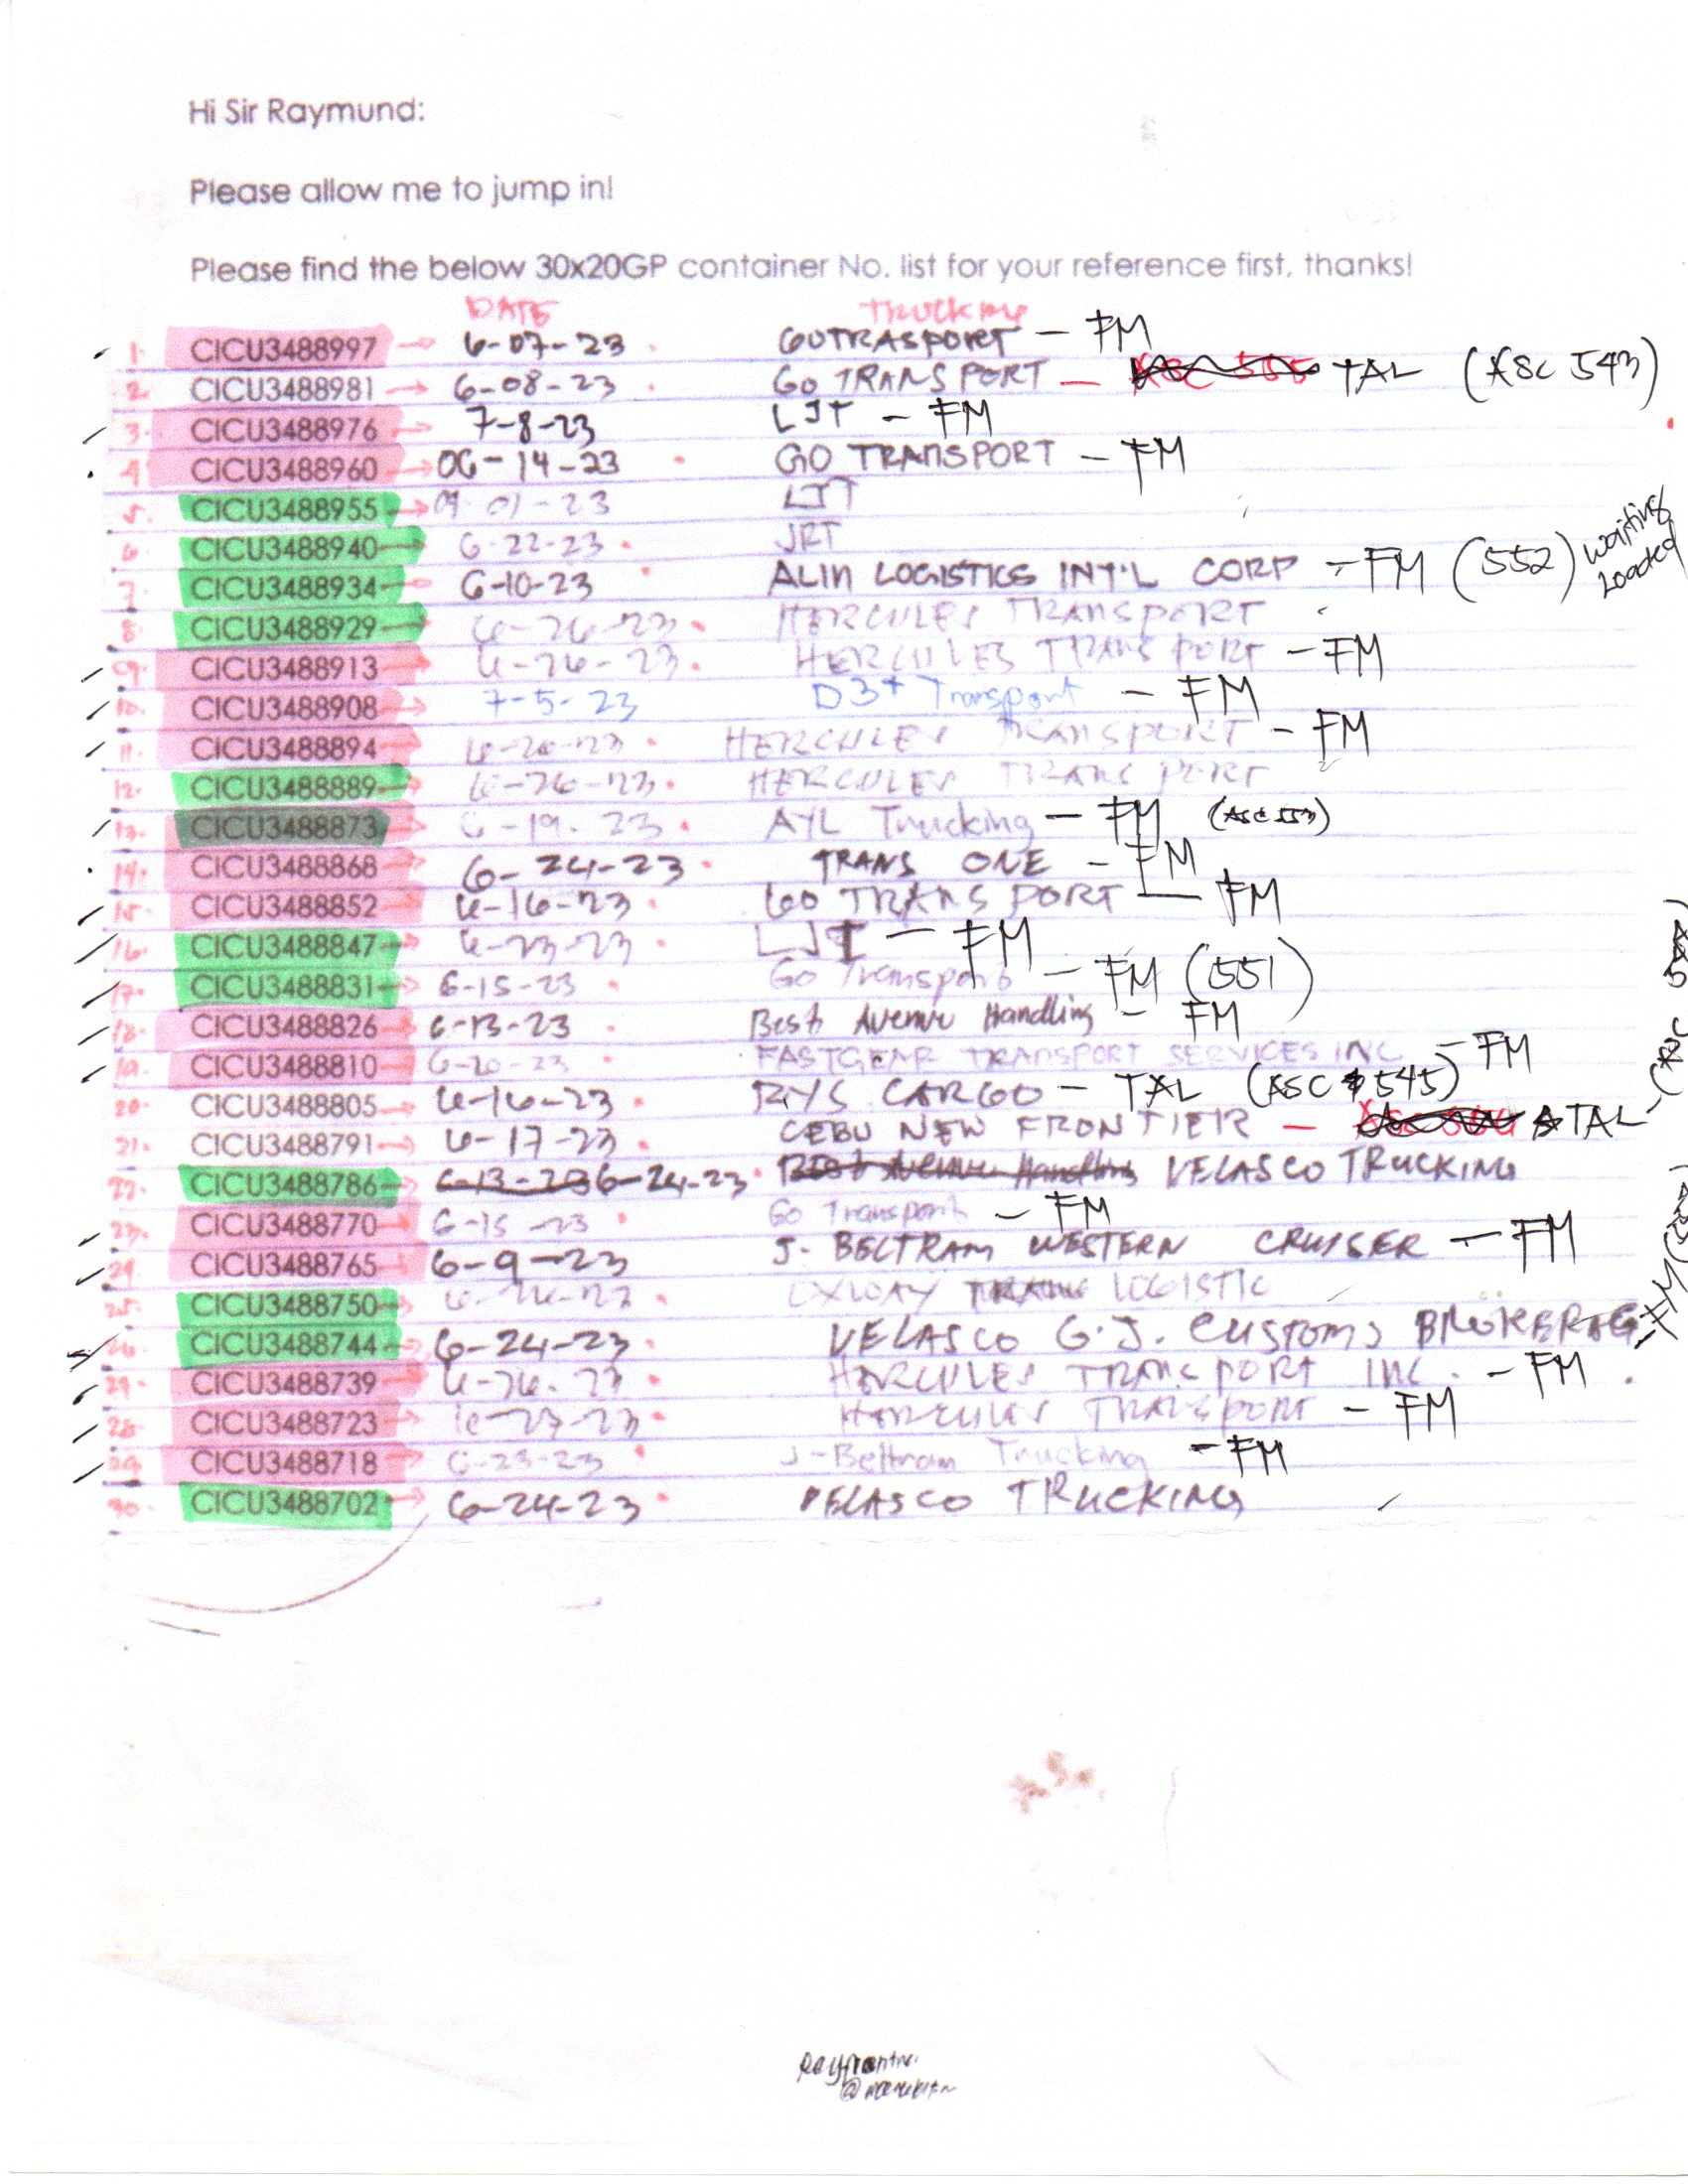 Hi Sir Raymund:
Please allow me to jump in!
Please find the below 30x20GP container No. list for your reference first, thanks!
DATE TRUCKING
1. CICU3488997 → 6-07-23 GOTRASPORT - FM
2. CICU3488981 → 6-08-23 GO TRANSPORT - TAL (ASC 543)
3. CICU3488976 → 7-8-23 LJT - FM
4. CICU3488960 → 06-14-23 GO TRANSPORT - FM
5. CICU3488955 → 01-23 LJT
6. CICU3488940 → 6-22-23 JRT
7. CICU3488934 → 6-10-23 ALIN LOGISTICS INT'L CORP - FM (552) waiting Loaded
8. CICU3488929 → 6-26-23 HERCULES TRANSPORT
9. CICU3488913 → 6-26-23 HERCULES TRANSPORT - FM
10. CICU3488908 → 7-5-23 D3+ Transport - FM
11. CICU3488894 → 6-26-23 HERCULES TRANSPORT - FM
12. CICU3488889 → 6-26-23 HERCULES TRANSPORT
13. CICU3488873 → 6-19-23 AYL Trucking - FM (ASC 553)
14. CICU3488868 → 6-24-23 TRANS ONE - FM
15. CICU3488852 → 6-16-23 GO TRANSPORT - FM
16. CICU3488847 → 6-23-23 LJT - FM
17. CICU3488831 → 6-15-23 Go Transport - FM (551)
18. CICU3488826 → 6-13-23 Best Avenue Handling - FM
19. CICU3488810 → 6-20-23 FASTGEAR TRANSPORT SERVICES INC - FM
20. CICU3488805 → 6-16-23 RYS CARGO - TAL (ASC 545)
21. CICU3488791 → 6-17-23 CEBU NEW FRONTIER - TAL
22. CICU3488786 → 6-13-23 6-24-23 Best Avenue Handling VELASCO TRUCKING
23. CICU3488770 → 6-15-23 Go Transport - FM
24. CICU3488765 → 6-9-23 J. BELTRAM WESTERN CRUISER - FM
25. CICU3488750 → OXWAY LOGISTIC
26. CICU3488744 → 6-24-23 VELASCO G.J. CUSTOMS BROKERAG - FM
27. CICU3488739 → 6-26-23 HERCULES TRANSPORT INC. - FM
28. CICU3488723 → 6-27-23 HERCULES TRANSPORT - FM
29. CICU3488718 → 6-23-23 J-Beltram Trucking - FM
30. CICU3488702 → 6-24-23 VELASCO TRUCKING